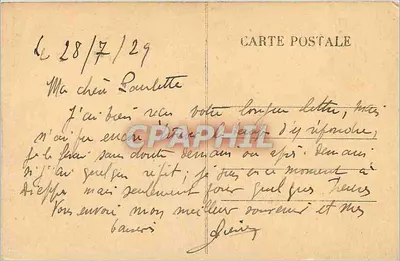 CARTE POSTALE
le 28/7/29
Ma chère Paulette
J'ai bien reçu votre longue lettre, mais
n'ai pu encore d'y répondre,
je le ferai sans doute demain ou après-demain
si j'ai quelque répit; je suis en ce moment à
Dieppe mais seulement pour quelques heures
Vous envoie mon meilleur souvenir et mes
baisers
CPAPHIL